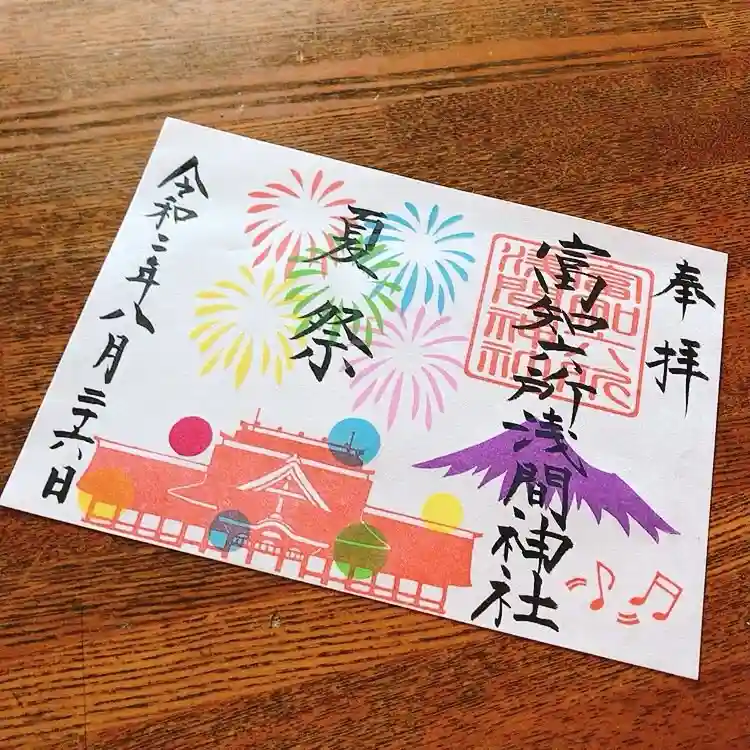 奉拝
富知六所浅間神社
富知六所浅間神社
夏祭
令和二年八月二十六日